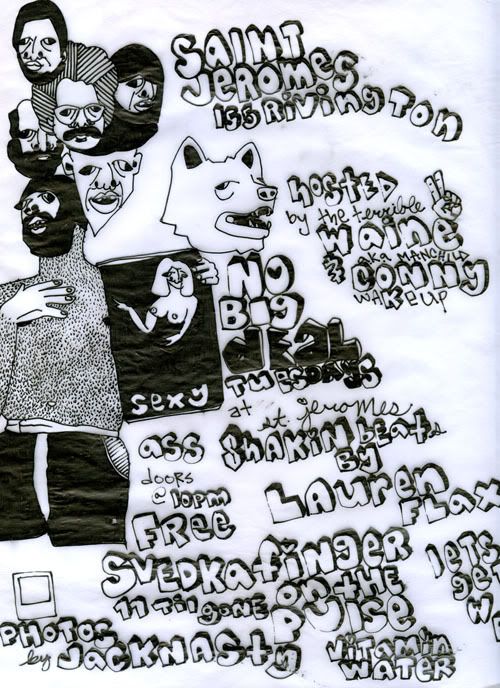 SAINT
JEROMES
155 RiviNgTON
hOSTED
by the terrible
WAINE
AKA MANCHILD
& CONNY
WAKEUP
NO
BIG
DEAL
TUESDAYS
at st. jeromes
sexy
ASS ShAKiN beats
BY
LAUREN
FLAX
doors
@ 10pm
FREE
SVEDKA
11 Til gONE
fiNgER
ON The
PUlSE
lETS
geT
W
PhOTOS
by JACKNASTy
ViTAMiN
WATER